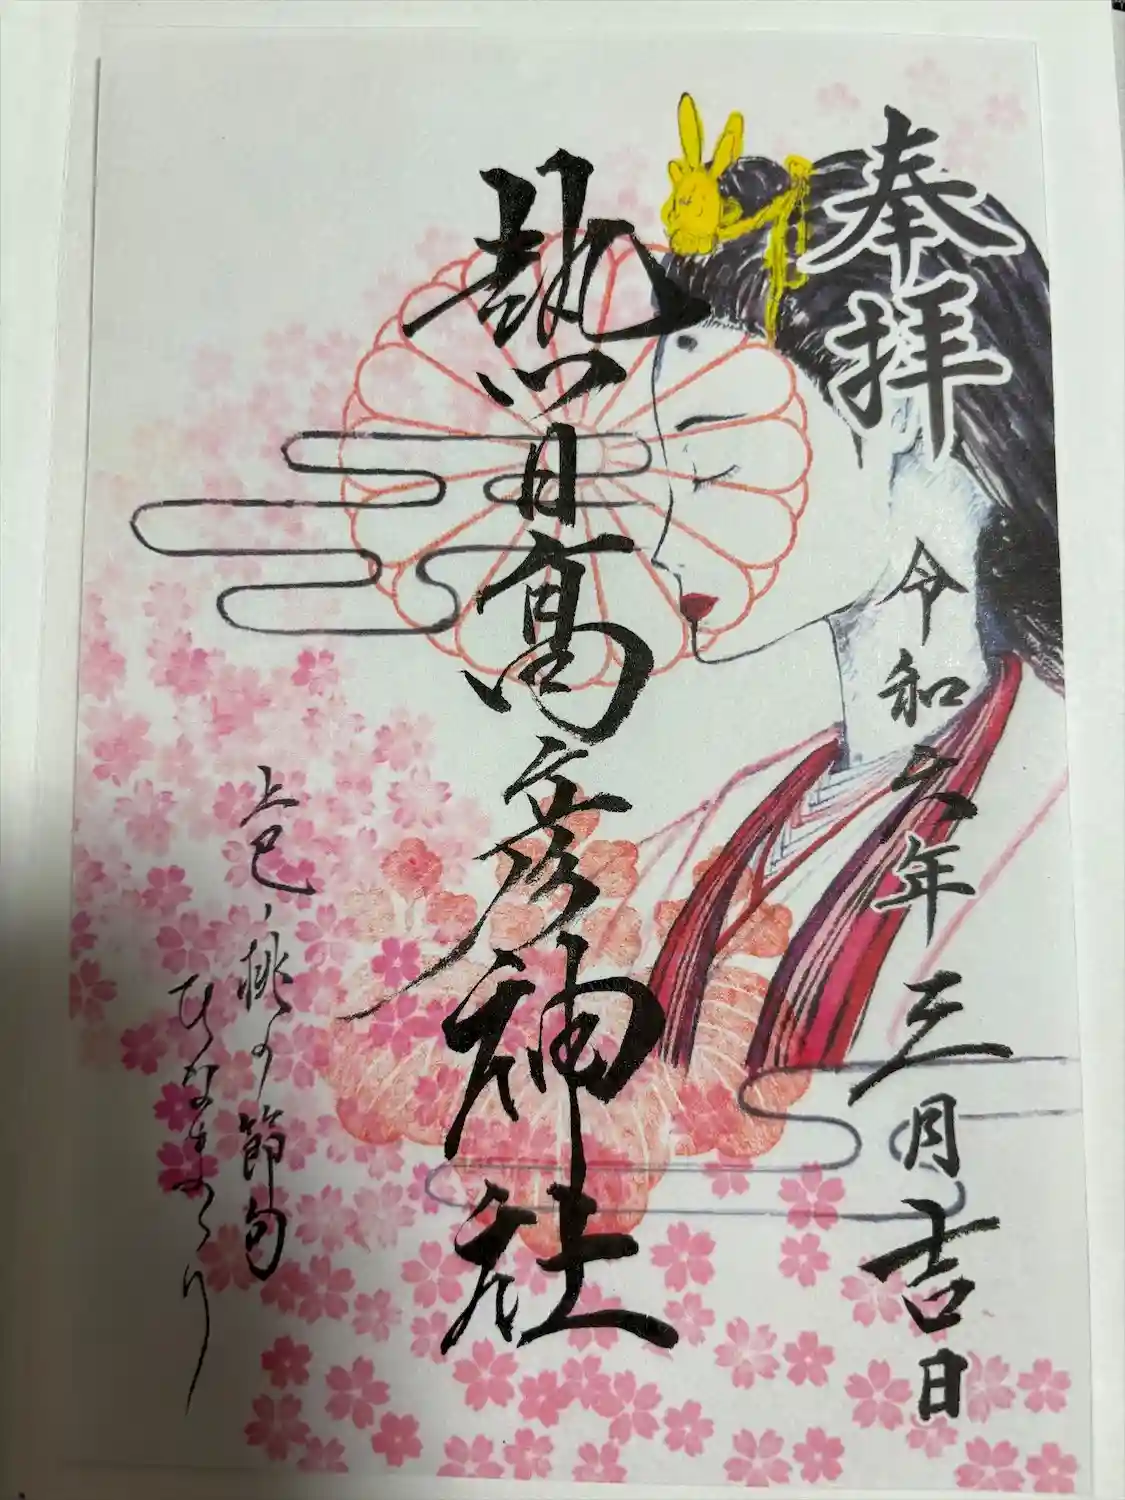 奉拝
令和六年三月吉日
熱日高彦神社
上巳、桃の節句
ひなまつり